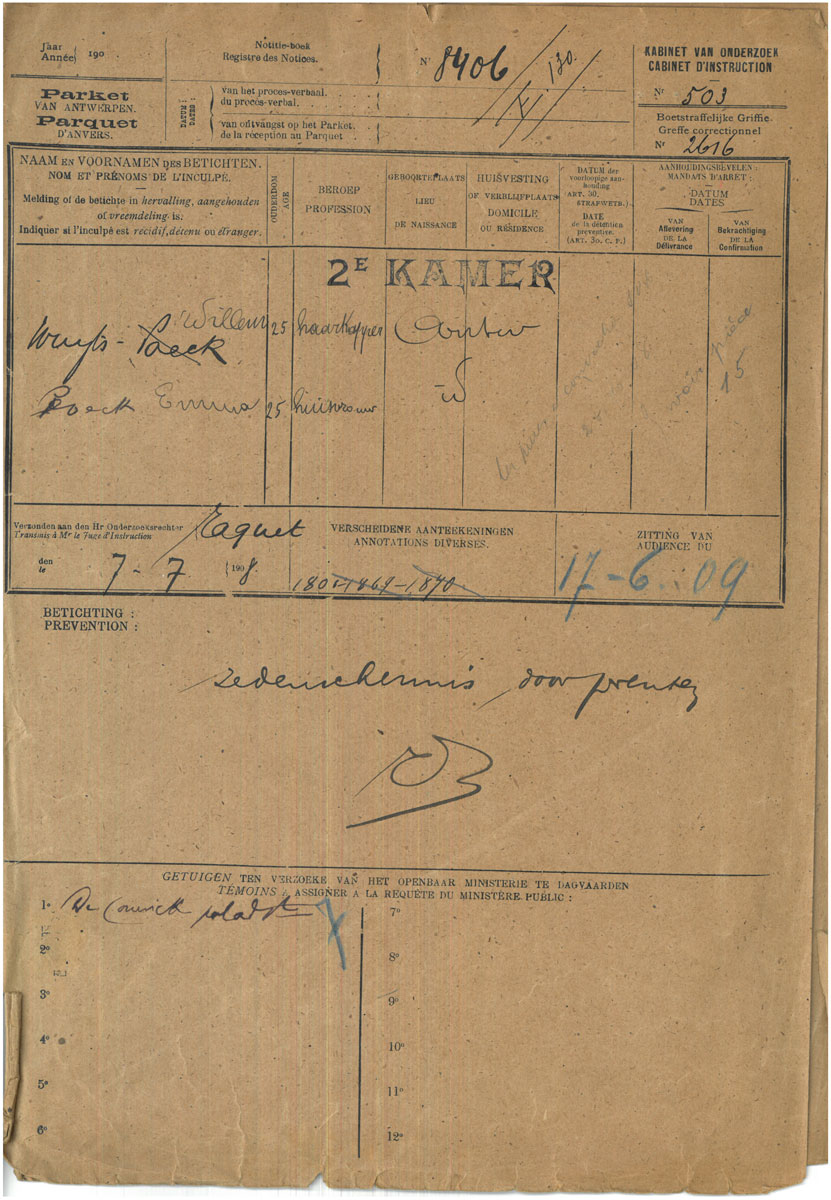 Jaar
Année
190
Notitie-boek
Registre des Notices.
N° 8406
/130.
KABINET VAN ONDERZOEK
CABINET D'INSTRUCTION
Nr 503
Parket
VAN ANTWERPEN.
Parquet
D'ANVERS.
DATUM :
DATES :
van het proces-verbaal.
du procès-verbal.
van ontvangst op het Parket.
de la réception au Parquet
Boetstraffelijke Griffie
Greffe correctionnel
Nr 2616
NAAM EN VOORNAMEN DES BETICHTEN.
NOM ET PRÉNOMS DE L'INCULPÉ.
Melding of de betichte in hervalling, aangehouden
of vreemdeling is.
Indiquer si l'inculpé est récidif, détenu ou étranger.
OUDERDOM
AGE
BEROEP
PROFESSION
GEBOORTEPLAATS
LIEU
DE NAISSANCE
HUISVESTING
OF VERBLIJFPLAATS
DOMICILE
OU RÉSIDENCE
DATUM der
voorloopige aan-
houding
(ART. 30,
STRAFWETB.)
DATE
de la détention
préventive.
(ART. 30, C. P.)
AANHOUDINGSBEVELEN:
MANDATS D'ARRÊT:
DATUM
DATES
VAN
Aflevering
DE LA
Délivrance
VAN
Bekrachtiging
DE LA
Confirmation
2E KAMER
Willem 25 haarkapper
Poeck
Poeck Emma 25 huisvrouw
voir pièce
15
Verzonden aan den Hr Onderzoeksrechter
Transmis à Mr le Juge d'Instruction
den
le
7-7 1908
VERSCHEIDENE AANTEEKENINGEN
ANNOTATIONS DIVERSES.
1801-1869-1870
ZITTING VAN
AUDIENCE DU
17-6.09
BETICHTING :
PREVENTION :
zedenschennis door prenten
GETUIGEN TEN VERZOEKE VAN HET OPENBAAR MINISTERIE TE DAGVAARDEN
TÉMOINS A ASSIGNER A LA REQUÊTE DU MINISTÈRE PUBLIC :
1° De Coninck
2°
3°
4°
5°
6°
7°
8°
9°
10°
11°
12°